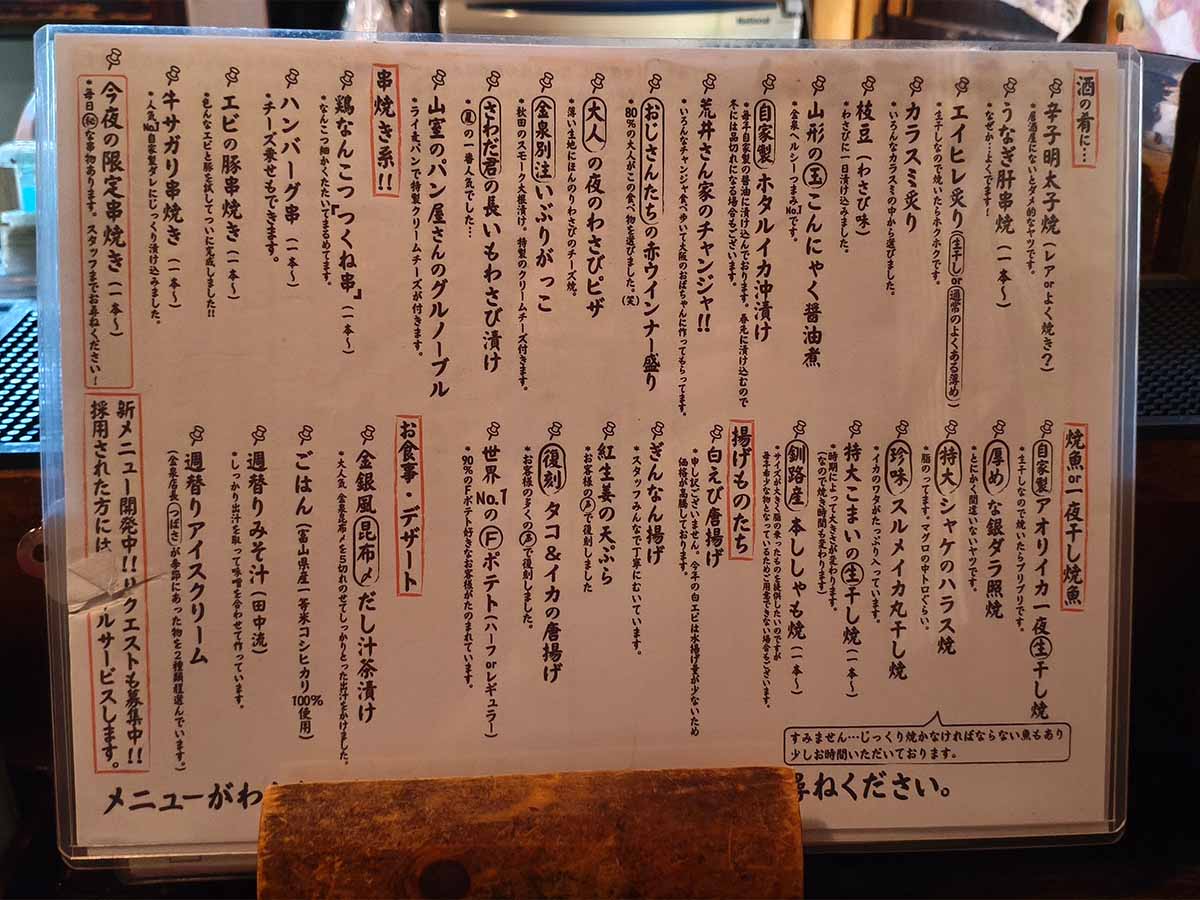 National
酒の肴に…
辛子明太子焼(レアorよく焼き?)
・居酒屋にないとダメ的なヤツです。
うなぎ肝串焼(一本〜)
・なぜか…よくでます!
エイヒレ炙り(生干しor通常のよくある薄め)
・生干しなので焼いたらホクホクです。
カラスミ炙り
・いろんなカラスミの中から選びました。
枝豆(わさび味)
・わさびに一日漬け込みました。
山形の玉こんにゃく醤油煮
・金泉ヘルシーつまみNo.1です。
自家製ホタルイカ沖漬け
・毎年自家製の醤油に漬け込んでおります。春先に漬け込むので
冬には品切れになる場合もございます。
荒井さん家のチャンジャ!!
・いろんなチャンジャ食べ歩いて大阪のおばちゃんに作ってもらってます。
おじさんたちの赤ウインナー盛り
・80%の大人がこの食べ物を選びました。(笑)
大人の夜のわさびピザ
・薄い生地にほんのりわさびのチーズ焼。
金泉別注いぶりがっこ
・秋田のスモーク大根漬け。特製のクリームチーズ付きます。
さわだ君の長いもわさび漬け
・(裏)の一番人気でした…
山室のパン屋さんのグルノーブル
・ライ麦パンで特製クリームチーズが付きます。
串焼き系!!
鶏なんこつ『つくね串』(一本〜)
・なんこつ細かくたたいてまるめてます。
ハンバーグ串(一本〜)
・チーズ乗せもできます。
エビの豚串焼き(一本〜)
・色んなエビと豚を試してついに完成しました!!
牛サガリ串焼き(一本〜)
・人気No.1自家製ダレにじっくり漬け込みました。
今夜の限定串焼き(一本〜)
・毎日㊙な串物あります。スタッフまでお尋ねください!
焼魚or一夜干し焼魚
自家製アオリイカ一夜生干し焼
・生干しなので焼いたらプリプリです。
厚めな銀ダラ焼
・とにかく間違いないヤツです。
特大シャケのハラス焼
・脂のってます。マグロの中トロぐらい。
珍味スルメイカ丸干し焼
・イカのワタがたっぷり入っています。
特大こまいの生干し焼(一本〜)
・時期によって大きさが変わります。
(なので焼き時間も変わります)
釧路産本ししゃも焼(一本〜)
・サイズが大きく脂の乗ったものを提供したいのですが
毎年希少な物となっているためご用意できない場合もございます。
すみません…じっくり焼かなければならない魚もあり
少しお時間いただいております。
揚げものたち
白えび唐揚げ
・申し訳ございません。今年の白エビは水揚げ量が少ないため
価格が高騰しております。
ぎんなん揚げ
・スタッフみんなで丁寧にむいています。
紅生姜の天ぷら
・お客様の声で復刻しました
復刻タコ&イカの唐揚げ
・お客様の多くの声で復刻しました。
世界No.1のⒻポテト(ハーフorレギュラー)
・90%のFポテト好きなお客様がたのまれています。
お食事・デザート
金銀風昆布〆だし汁茶漬け
・大人気 金泉昆布〆を5切れのせてしっかりとった出汁をかけました。
ごはん(富山県産一等米コシヒカリ100%使用)
週替りみそ汁(田中流)
・しっかり出汁を取って味噌を合わせて作っています。
週替りアイスクリーム
(金泉店長つばさが季節にあった物を2種類程選んでいます。)
新メニュー開発中!!リクエストも募集中!!
採用された方には ルサービスします。
メニューがわ
尋ねください。